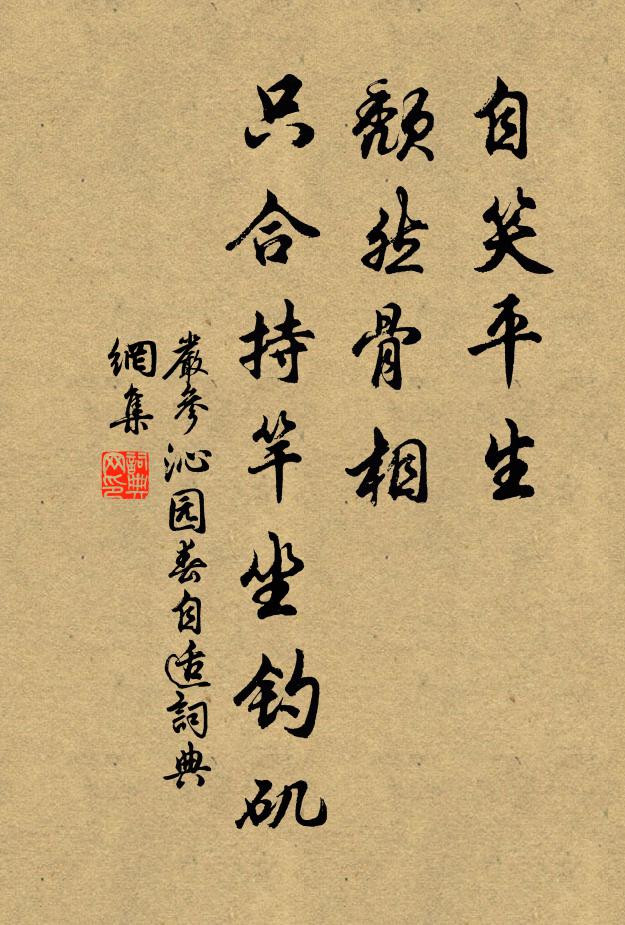 自笑平生
颓然骨相
只合持竿坐钓矶
嚴参沁园春自适詞典
網集
詞典网印